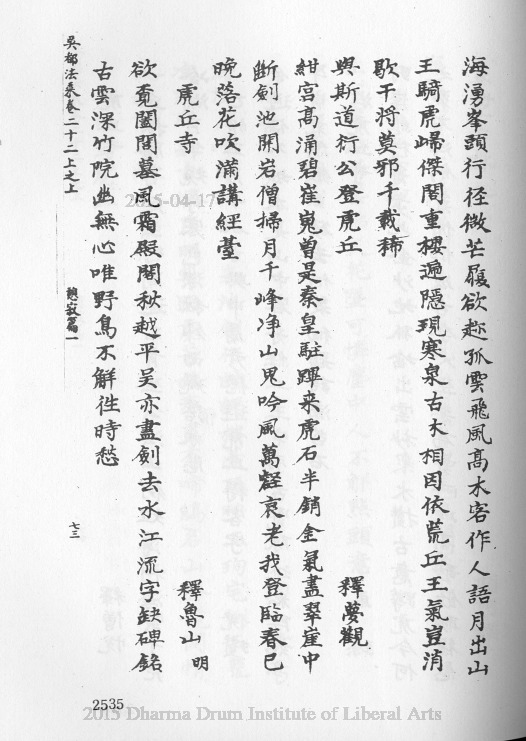 海湧峯頭行徑微芒屐欲趁孤雲飛風高木客作人語月出山
王騎虎歸傑閣重樓遞隱現寒泉古木相因依荒丘王氣豈消
歇干將莫邪千載稀
與斯道衍公登虎丘 釋夢觀
紺宮高涌碧崔嵬曾是秦皇駐蹕来虎石半銷金氣盡翠崖中
斷劍池開岩僧掃月千峰净山鬼吟風萬壑哀老我登臨春已
晚落花吹滿講經臺
虎丘寺 釋魯山 明
欲覓闔閭墓風霜殿閣秋越平吳亦盡劍去水江流字缺碑銘
古雲深竹院幽無心唯野鳥不解徃時愁
吳都法乘卷二十二上之上 䰟寂篇一 七三
2535
2015-04-17
2015 Dharma Drum Institute of Liberal Arts